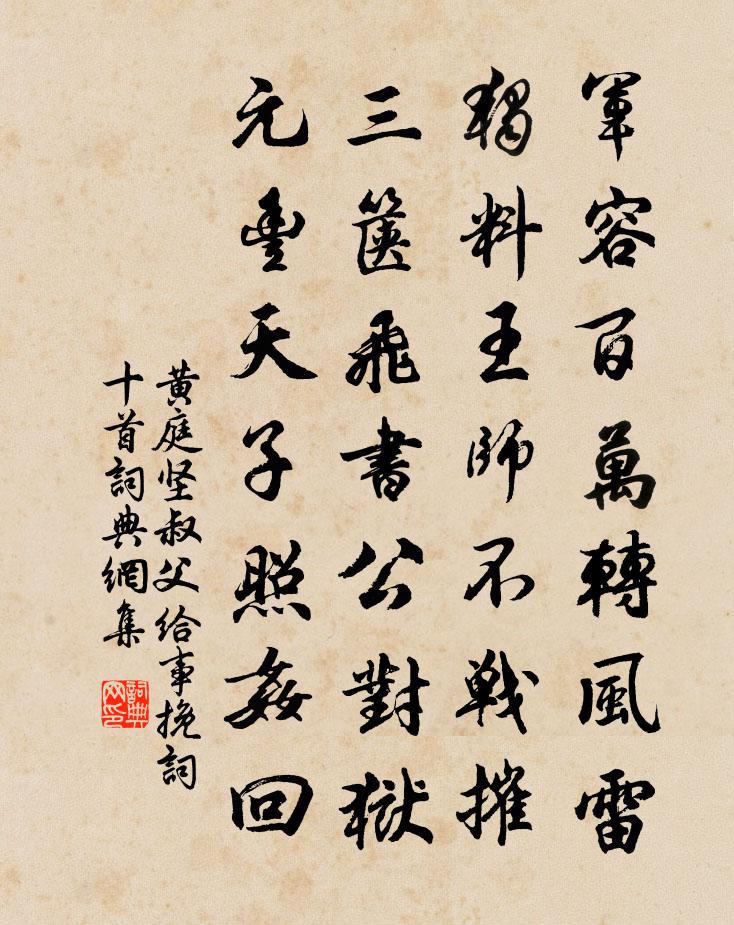 軍容百萬轉風雷
獨料王師不戰摧
三篋飛書公對獄
元豐天子照姦回
黄庭坚叔父給事挽詞
十首詞典網集
詞典
网印